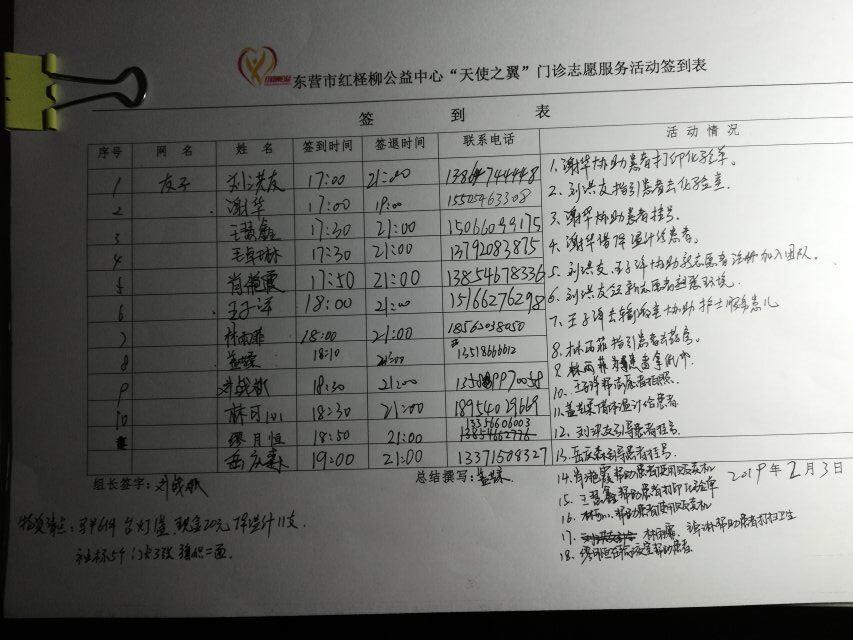 东营市红柽柳公益中心“天使之翼”门诊志愿服务活动签到表
签 到 表
序号 网 名 姓 名 签到时间 签退时间 联系电话 活 动 情 况
1 友子 刘洪友 17:00 21:00
2 谢华 17:00 19:00 15505463308
3 王慧鑫 17:30 21:00 15066099175
4 王卓琳 17:30 21:00 13792083875
5 肖艳霞 17:50 21:00 13854678336
6 王子洋 18:00 21:00 15166276298
7 林雨菲 18:00 21:00 18562038050
8 18:10 21:00 13518666012
9 刘战敏 18:30 21:00
10 18:30 21:00 18954029669
缪月恒 18:50 21:00 13356606003
岳庆森 19:00 21:00 13371508327
1、谢华协助患者打印化验单。
2、刘洪友指引患者去化验室。
3、谢华协助患者挂号。
4、谢华借体温计给患者。
5、刘洪友、王子洋协助新志愿者注册加入团队。
6、刘洪友领新志愿者熟悉环境。
7、王子洋去输液室协助护士服务患儿
8、林雨菲指引患者去药房。
9、林雨菲为患者拿
10、王子洋帮助患者拍照。
11、借体温计给患者
12、刘洪友引导患者挂号
13、岳庆森引导患者挂号
14、肖艳霞帮助患者使用取药机
15、王慧鑫帮助患者打印化验单
16、帮助患者使用取药机
17、林雨霏、卓琳帮助患者打扫卫生
18、缪月恒在帮助患者
组长签字：刘战敏 总结撰写： 2019年2月3日
物资清点：马甲6件 台灯1盏 现金20元 体温计11支
社标5个 门卡3张 旗帜二面。